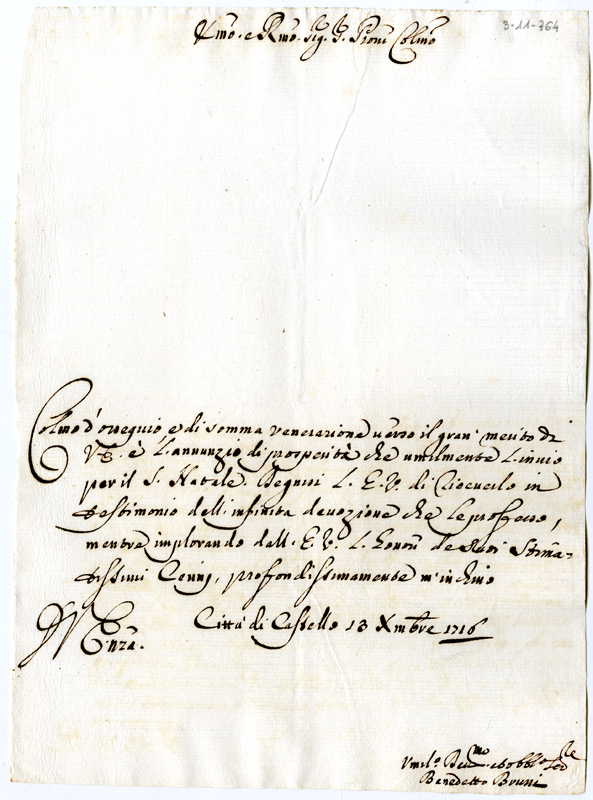 3-11-764
Emo. e Rmo. Sig. Pron Colmo
Colmo d'ossequio, e di somma venerazione verso il gran merito di
V. E. è l'annunzio di prosperità che umilmente l'invio
per il S. Natale. Degnisi L. E. V. di riceverlo in
testimonio dell'infinita devozione che le professo,
mentre implorando dall. E. V. l. honor de suoi Stima-
tissimi Cenni, profondissimamente m'inchino
Città di Castello 13 Xmbre 1716
Umilo. Devmo ed obblo Sre
Benedetto Bruni